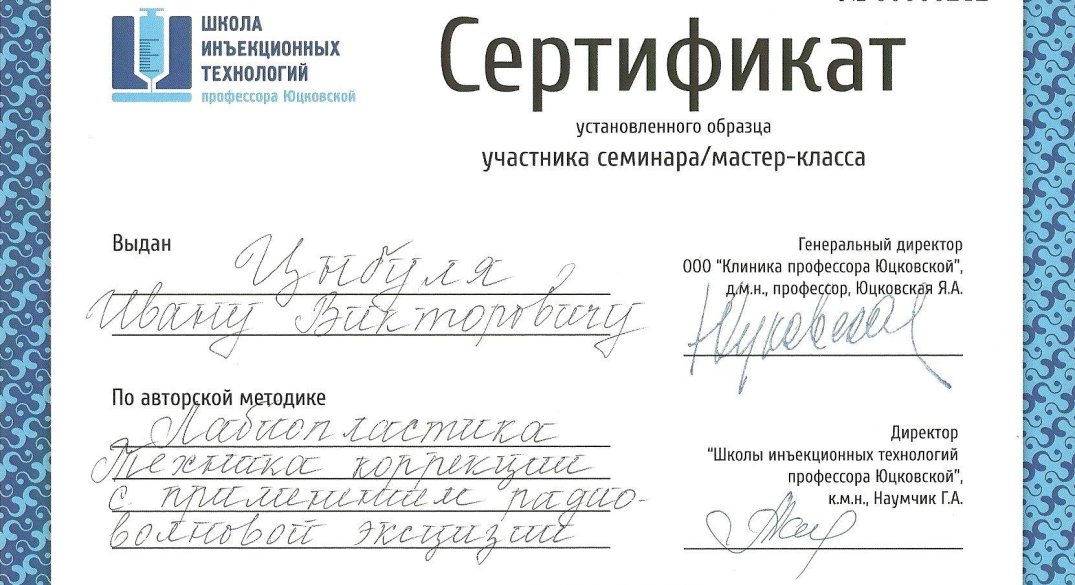 ШКОЛА
ИНЪЕКЦИОННЫХ
ТЕХНОЛОГИЙ
профессора Юцковской
Сертификат
установленного образца
участника семинара/мастер-класса
Выдан
Цыбуля
Ивану Викторовичу
По авторской методике
Лабиопластика
Техника коррекции
с применением радио-
волновой эксцизии
Генеральный директор
ООО "Клиника профессора Юцковской",
д.м.н., профессор, Юцковская Я.А.
Юцковская
Директор
"Школы инъекционных технологий
профессора Юцковской",
к.м.н., Наумчик Г.А.